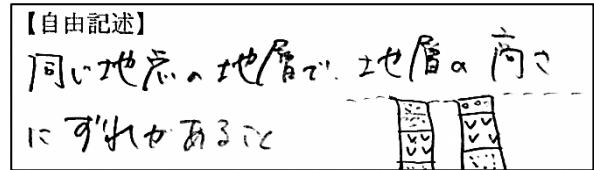 【自由記述】
同じ地点の地層で、地層の高さ
にずれがあること